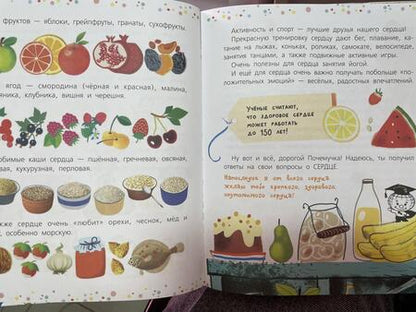 фруктов — яблоки, грейпфруты, гранаты, сухофрукты.
ягод — смородина (чёрная и красная), малина,
клубника, вишня и черешня.
каши сердца — пшённая, гречневая, овсяная,
кукурузная, перловая.
сердце очень «любит» орехи, чеснок, мёд и
особенно морскую.
Активность и спорт — лучшие друзья нашего сердца!
Прекрасную тренировку сердцу дают бег, плавание, ка-
тание на лыжах, коньках, роликах, самокате, велосипеде,
занятия танцами, а также подвижные активные игры.
Очень полезны для сердца занятия йогой.
И ещё для сердца очень важно получать побольше «по-
ложительных эмоций» — весёлых, радостных впечатлений.
УЧЁНЫЕ СЧИТАЮТ,
ЧТО ЗДОРОВОЕ СЕРДЦЕ
МОЖЕТ РАБОТАТЬ
ДО 150 ЛЕТ!
Ну вот и всё, дорогой Почемучка! Надеюсь, ты получил
ответы на свои вопросы о СЕРДЦЕ.
Напоследок я от всего сердца
желаю тебе крепкого, здорового,
неутомимого сердца!